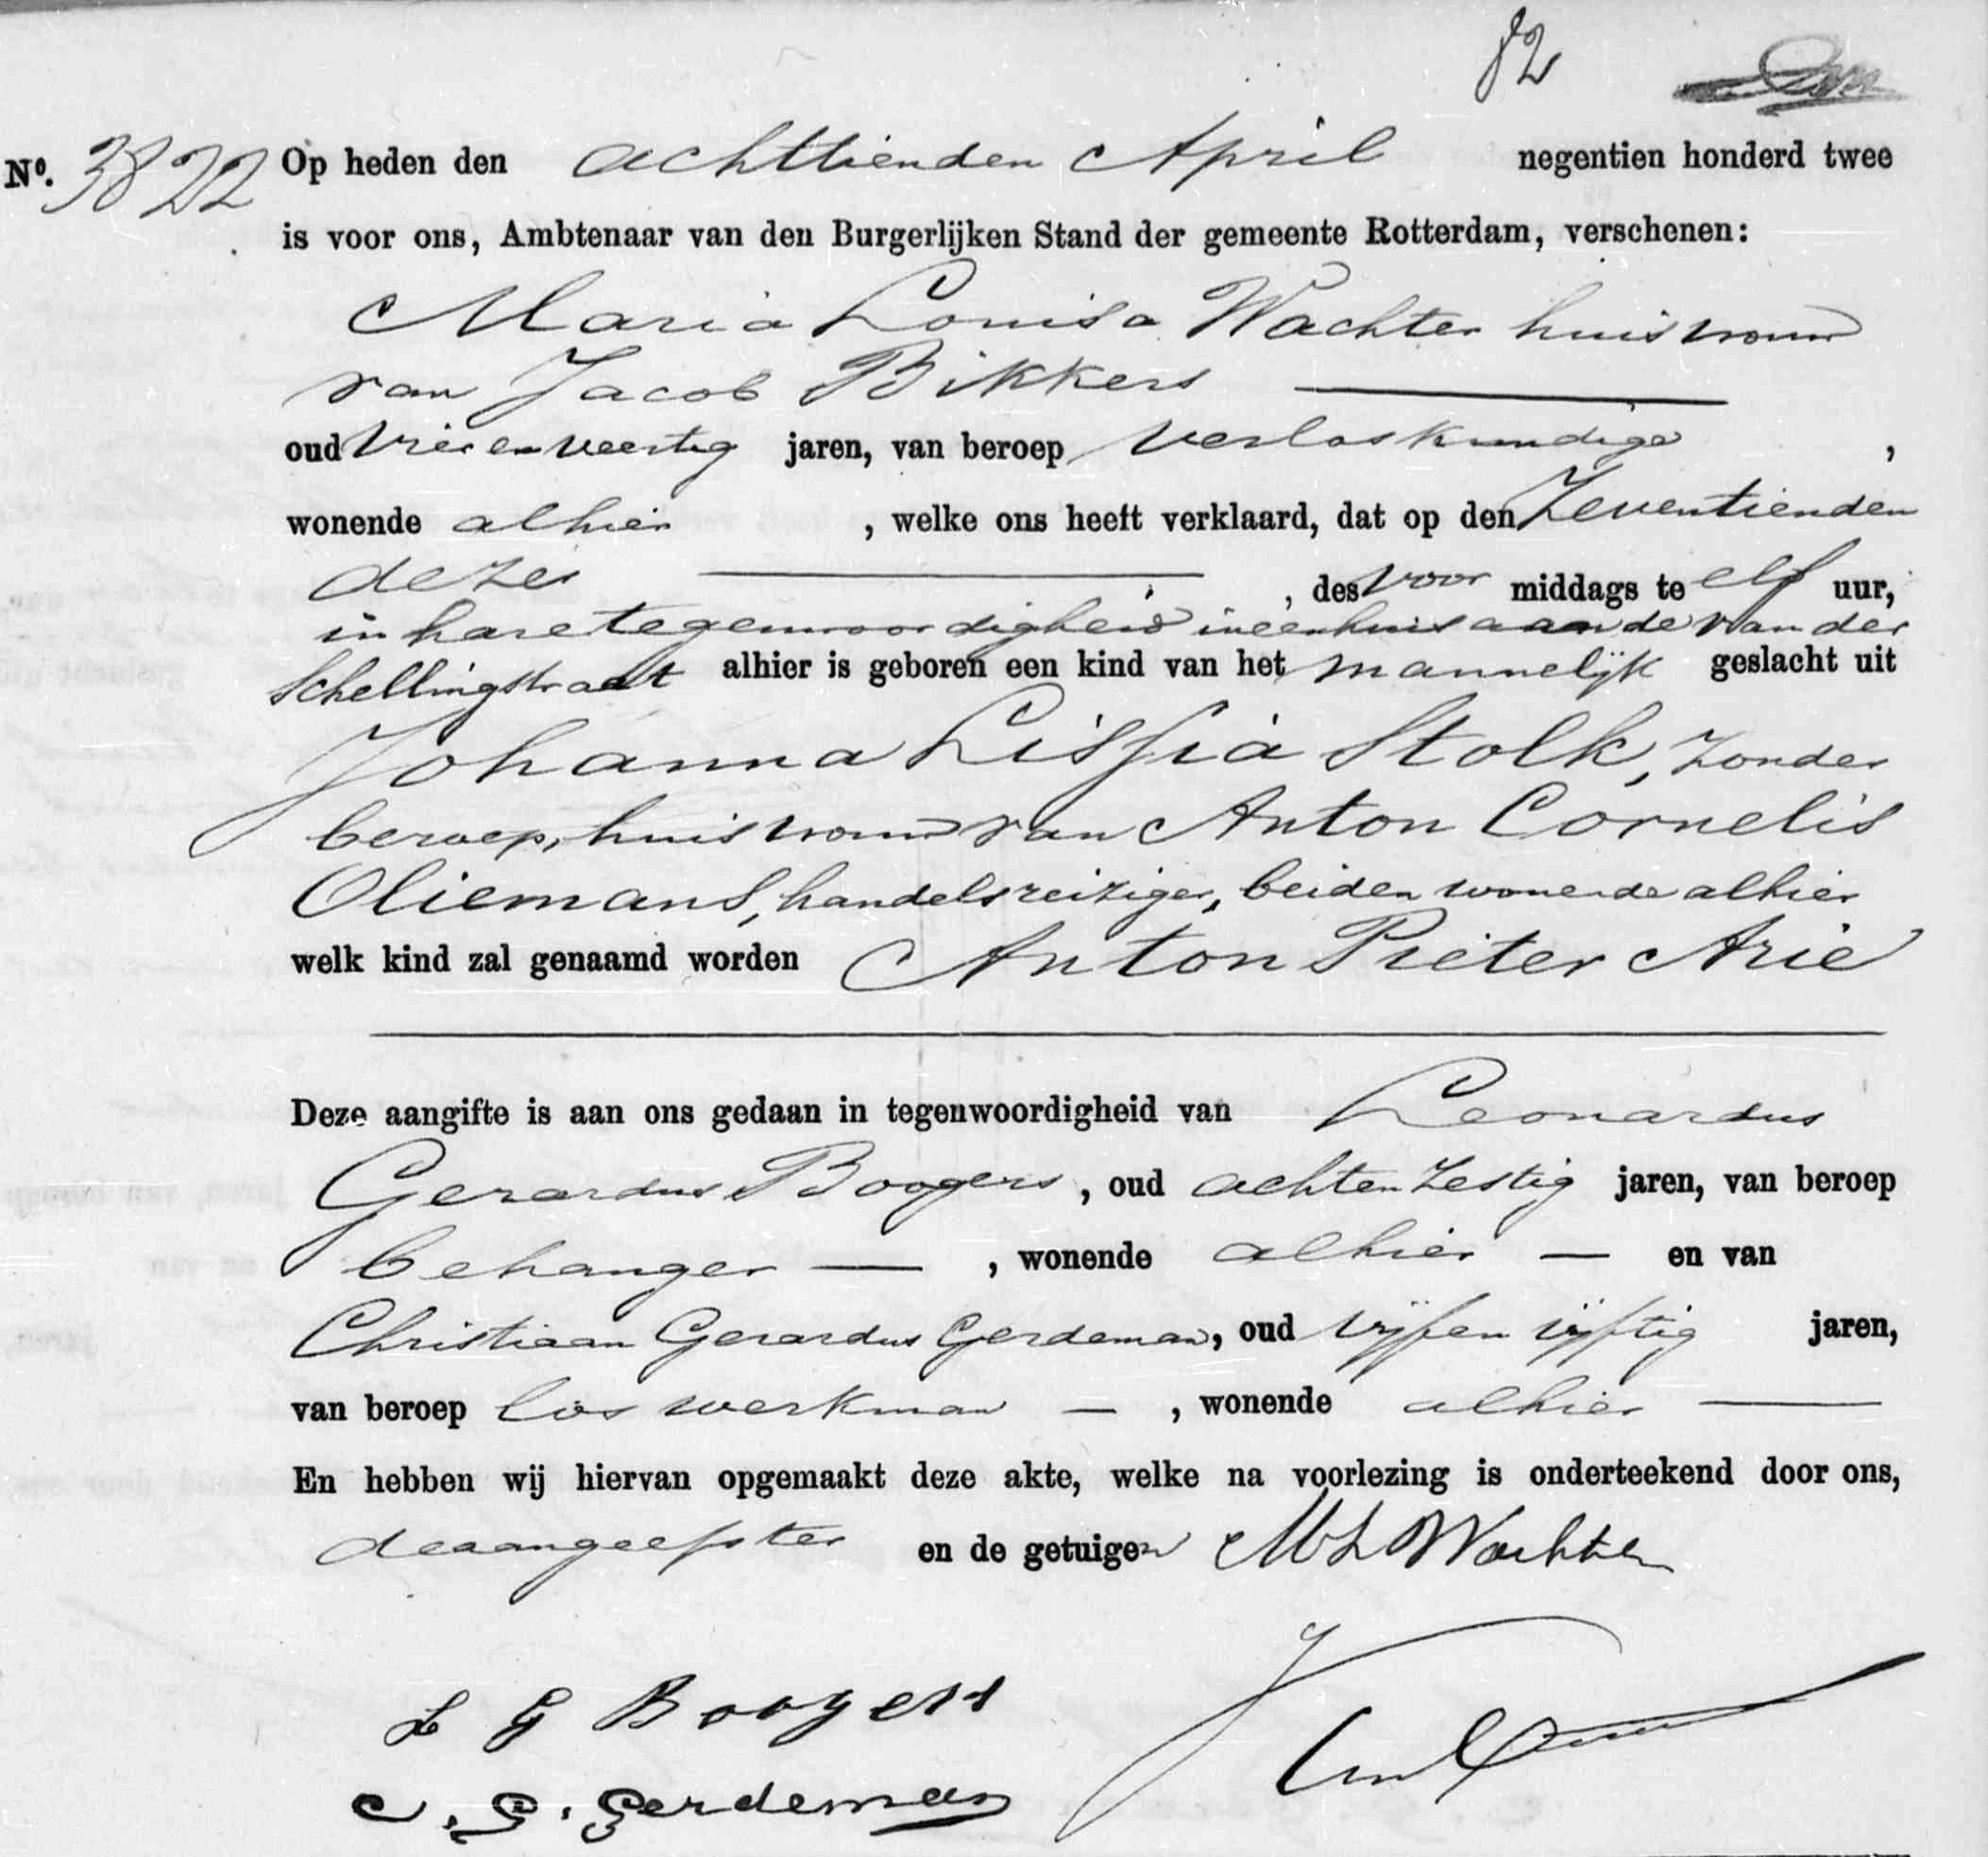 82
No. 3822 Op heden den achttienden April negentien honderd twee
is voor ons, Ambtenaar van den Burgerlijken Stand der gemeente Rotterdam, verschenen:
Maria Louisa Wachter huisvrouw
van Jacob Bikkers
oud vier en veertig jaren, van beroep verloskundige,
wonende alhier, welke ons heeft verklaard, dat op den Zeventienden
dezer, des voor middags te elf uur,
in hare tegenwoordigheid in een huis aan de van der
Schellingstraat alhier is geboren een kind van het mannelijk geslacht uit
Johanna Lissia Stolk, zonder
beroep, huisvrouw van Anton Cornelis
Oliemans, handelsreiziger, beiden wonende alhier
welk kind zal genaamd worden Anton Pieter Arie
Deze aangifte is aan ons gedaan in tegenwoordigheid van Leonardus
Gerardus Boogers, oud acht en zestig jaren, van beroep
behanger, wonende alhier en van
Christiaan Gerardus Gerdeman, oud vijf en vijftig jaren,
van beroep los werkman, wonende alhier
En hebben wij hiervan opgemaakt deze akte, welke na voorlezing is onderteekend door ons,
de aangeefster en de getuigen M L Wachter
L G Boogers
C. G. Gerdeman